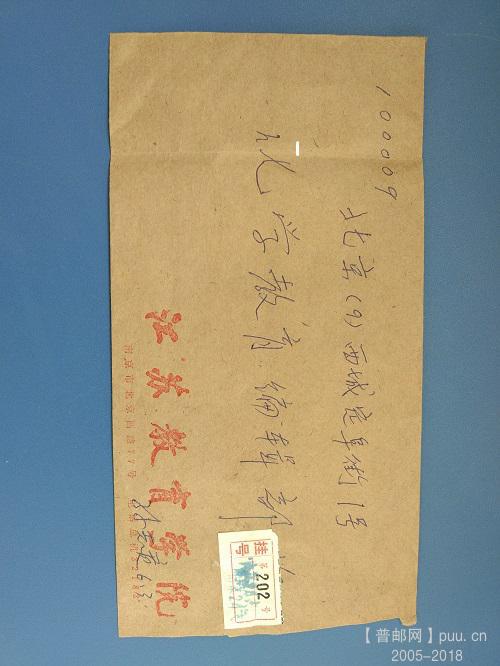 100009
北京(9)西城定阜街1号
化学教育编辑部
挂号
第202号
江苏教育学院
南京市北京西路77号
【普邮网】puu.cn
2005-2018